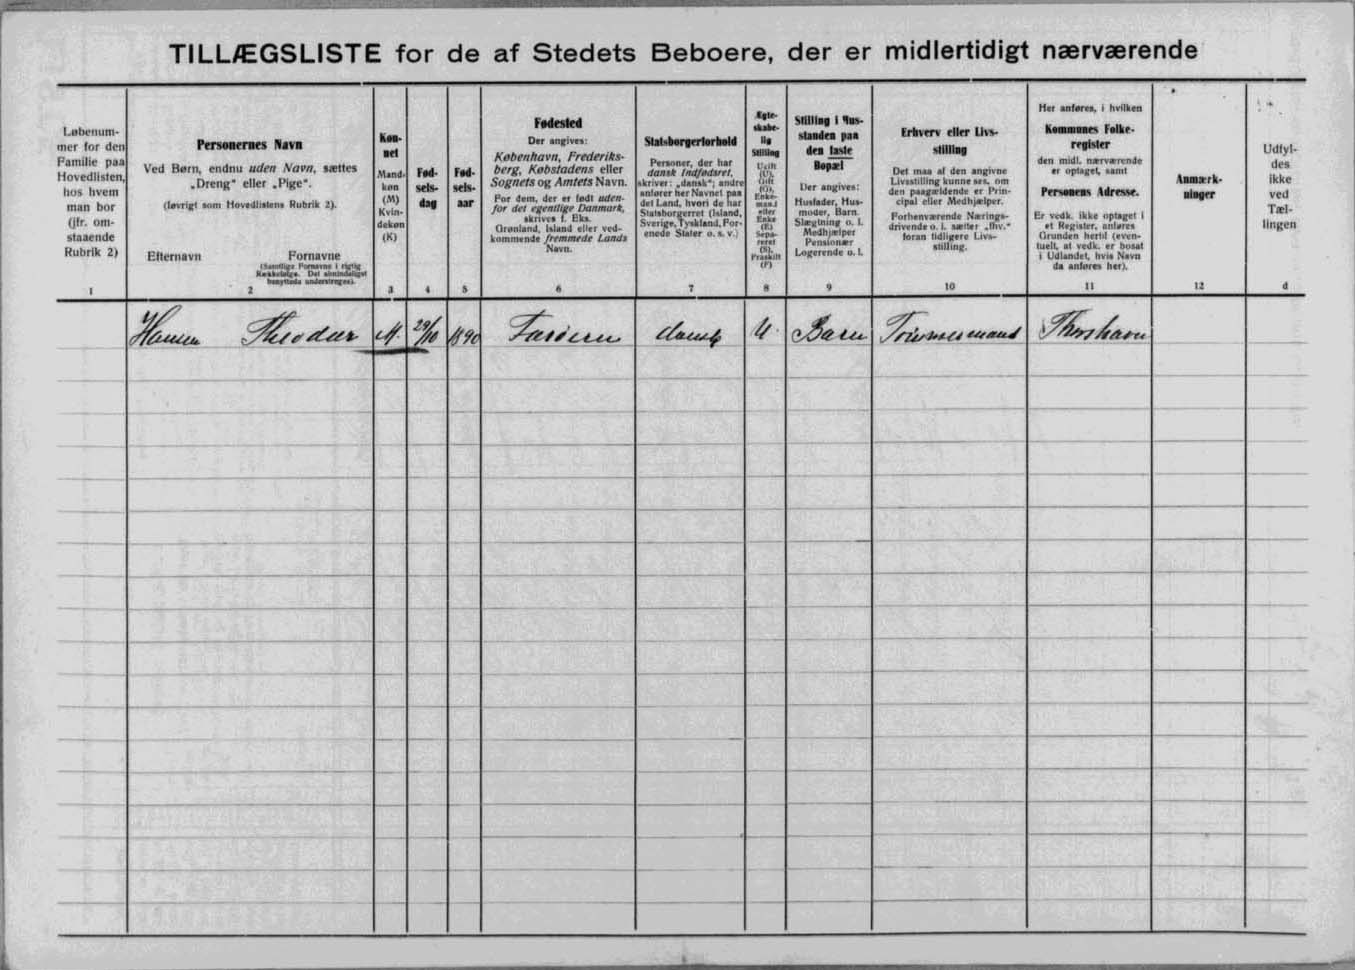 TILLÆGSLISTE for de af Stedets Beboere, der er midlertidigt nærværende
Løbenum-
mer for den
Familie paa
Hovedlisten,
hos hvem
man bor
(jfr. om-
staaende
Rubrik 2)
1
Personernes Navn
Ved Børn, endnu uden Navn, sættes
„Dreng“ eller „Pige“.
(Iøvrigt som Hovedlistens Rubrik 2).
Efternavn Fornavne
(Samtlige Fornavne i rigtig
Rækkefølge. Det almindeligst
benyttede understreges).
2
Køn-
net
Mand-
køn
(M)
Kvin-
dekøn
(K)
3
Fød-
sels-
dag
4
Fød-
sels-
aar
5
Fødested
Der angives:
København, Frederiks-
berg, Købstadens eller
Sognets og Amtets Navn.
For dem, der er født uden-
for det egentlige Danmark,
skrives f. Eks.
Grønland, Island eller ved-
kommende fremmede Lands
Navn.
6
Statsborgerforhold
Personer, der har
dansk Indfødsret,
skriver: „dansk“; andre
anfører her Navnet paa
det Land, hvori de har
Statsborgerret (Island,
Sverige, Tyskland, For-
enede Stater o. s. v.)
7
Ægte-
skabe-
lig
Stilling
Ugift
(U),
Gift
(G),
Enke-
mand
eller
Enke
(E)
Sepa-
reret
(S),
Fraskilt
(F)
8
Stilling i Hus-
standen paa
den faste
Bopæl
Der angives:
Husfader, Hus-
moder, Barn,
Slægtning o. l.
Medhjælper
Pensionær
Logerende o. l.
9
Erhverv eller Livs-
stilling
Det maa af den angivne
Livsstilling kunne ses, om
den paagældende er Prin-
cipal eller Medhjælper.
Forhenværende Nærings-
drivende o. l. sætter „fhv.“
foran tidligere Livs-
stilling.
10
Her anføres, i hvilken
Kommunes Folke-
register
den midl. nærværende
er optaget, samt
Personens Adresse.
Er vedk. ikke optaget i
et Register, anføres
Grunden hertil (even-
tuelt, at vedk. er bosat
i Udlandet, hvis Navn
da anføres her).
11
Anmærk-
ninger
12
Udfyl-
des
ikke
ved
Tæl-
lingen
d
Hansen Theodor M. 29/10 1890 Færøerne dansk U. Barn Tømmermand Thorshavn